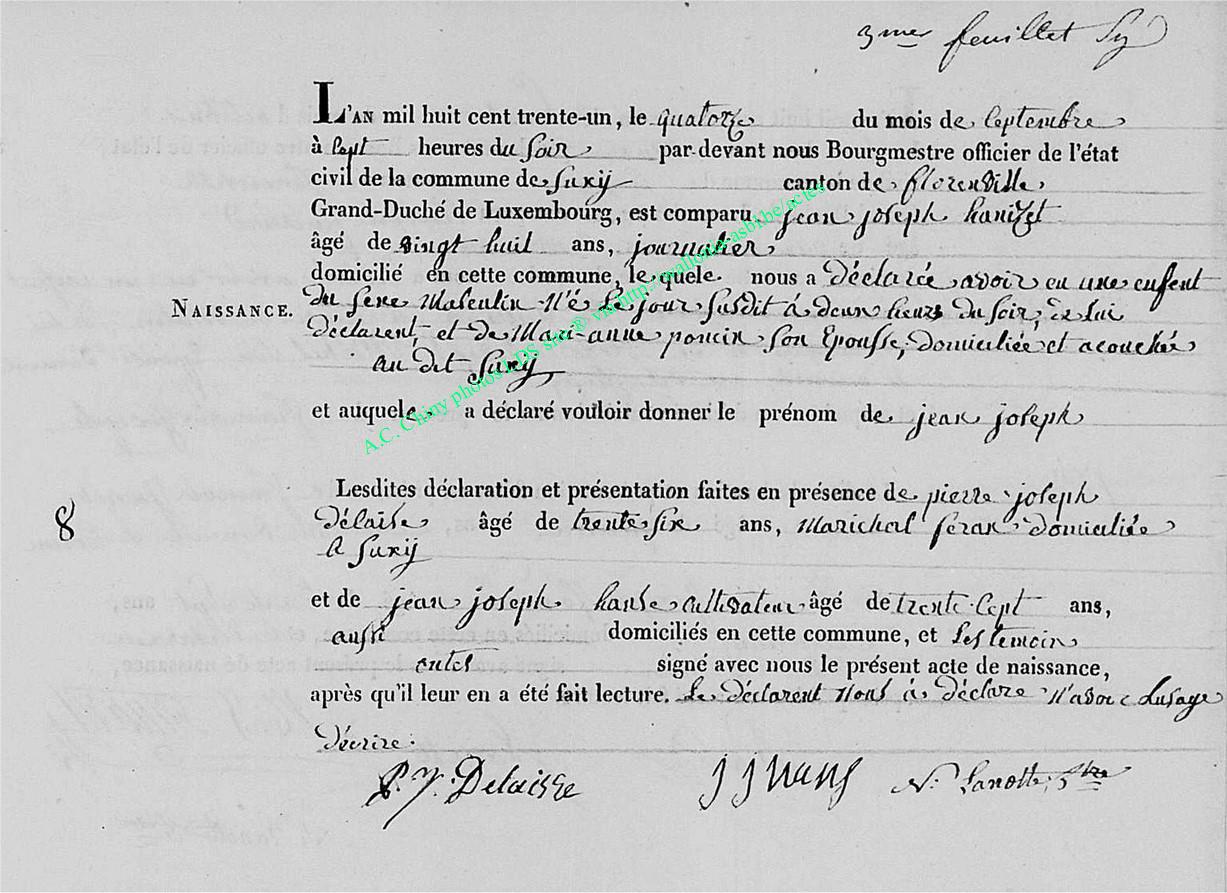 3mer feuillet Sy
L'AN mil huit cent trente-un, le quatorze du mois de Septembre
à Sept heures du Soir par-devant nous Bourgmestre officier de l'état
civil de la commune de Suxÿ canton de florenville
Grand-Duché de Luxembourg, est comparu jean joseph hanizet
âgé de vingt huit ans, journalier
domicilié en cette commune, lequele nous a déclarée avoir eu une enfent
NAISSANCE.
du Sexe Masculin Né Le jour Susdit à deux heurs du Soir, de lui
déclarent, et de Mari-anne poncin Son Epousse, domiciliée et acouchée
au dit Suxÿ
et auquele a déclaré vouloir donner le prénom de jean joseph
Lesdites déclaration et présentation faites en présence de pierre joseph
8
délaise âgé de trente Six ans, Marichal feran domiciliée
a Suxÿ
et de jean joseph hanse cultivateur âgé de trente Sept ans,
aussi domiciliés en cette commune, et Les temoin
ontet signé avec nous le présent acte de naissance,
après qu'il leur en a été fait lecture. Le déclarent Nous à déclare N'avoir Lusage
décrire.
P. J. Delaisse J J Hans N. Lanotte, Btre
A.C. Chiny photos LDS site® via http://wallonia-asbl.be/actes